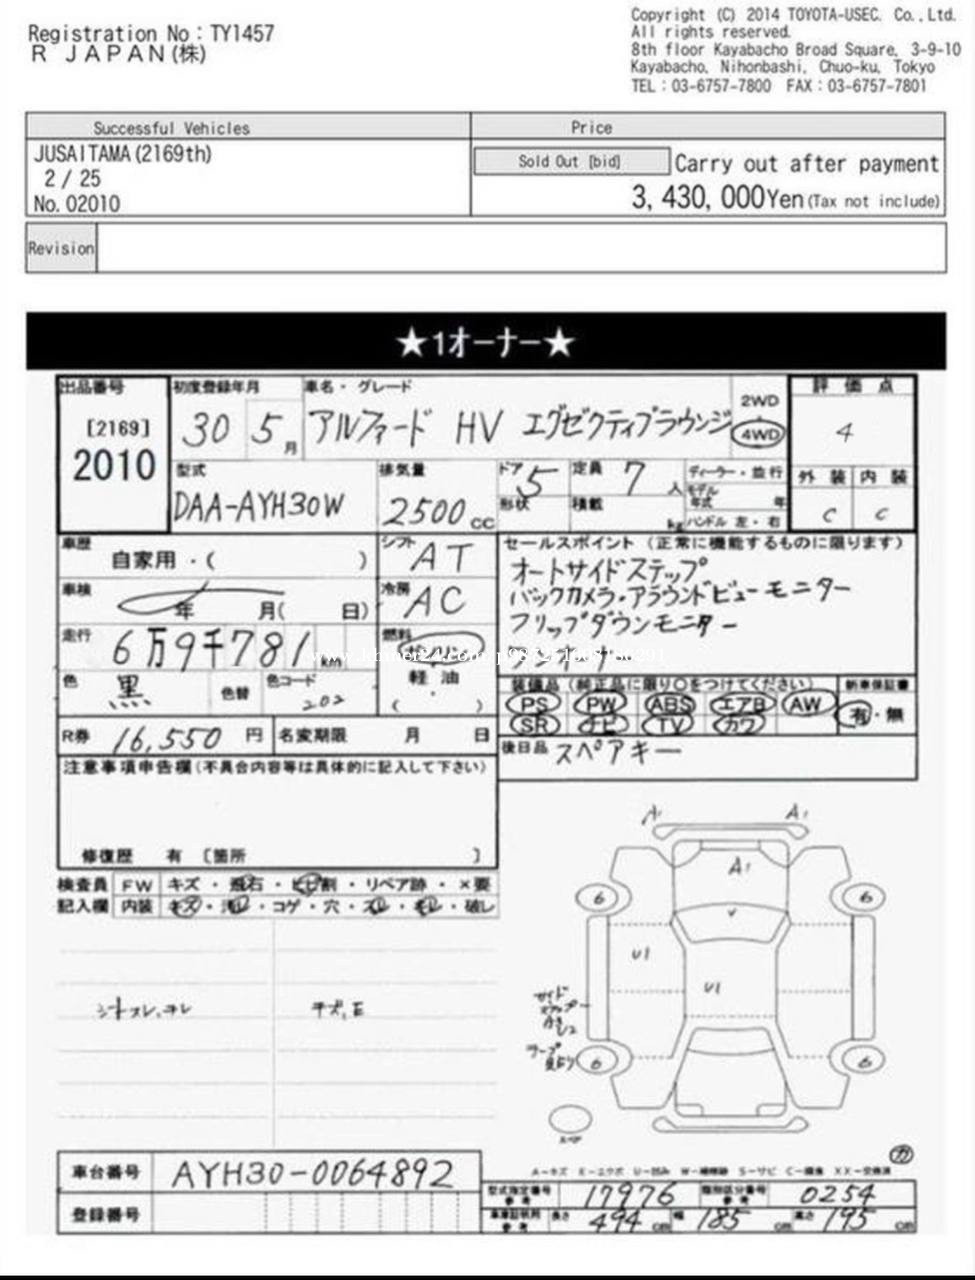 Registration No：TY1457
R JAPAN(株)
Copyright (C) 2014 TOYOTA-USEC. Co.,Ltd.
All rights reserved.
8th floor Kayabacho Broad Square, 3-9-10
Kayabacho, Nihonbashi, Chuo-ku, Tokyo
TEL：03-6757-7800 FAX：03-6757-7801
Successful Vehicles
Price
JUSAITAMA(2169th)
2 / 25
No. 02010
Sold Out [bid]
Carry out after payment
3, 430, 000Yen(Tax not include)
Revision
★1オーナー★
出品番号
[2169]
2010
初度登録年月
30 5月
車名・グレード
アルファード HV エグゼクティブラウンジ
2WD
4WD
評価点
4
外装 内装
C C
型式
DAA-AYH30W
排気量
2500cc
ドア 5
形状
定員 7人
積載 kg
ディーラー・並行
モデル年式 年
ハンドル 左・右
車歴
自家用・( )
シフト AT
車検
年 月( 日)
冷房 AC
走行
6万9千781km
燃料
軽油
( )
色
黒
色替
色コード
202
セールスポイント (正常に機能するものに限ります)
オートサイドステップ
バックカメラ・アラウンドビューモニター
フリップダウンモニター
装備品 (純正品に限り○をつけてください)
PS PW ABS エアB AW
SR ナビ TV カワ
新車保証書
有・無
R券 16,550円
名変期限 月 日
後日品 スペアキー
注意事項申告欄(不具合内容等は具体的に記入して下さい)
修復歴 有 〔箇所 〕
検査員 FW キズ・飛石・ヒビ割・リペア跡・×要
記入欄 内装 キズ・汚レ・コゲ・穴・スレ・モレ・破レ
A1 A1
A1
6 6
U1
U1
6 6
スペア
A－キズ E－エクボ U－凹み W－補修跡 S－サビ C－腐食 XX－交換済
車台番号 AYH30-0064892
登録番号
型式指定番号 参考 17976
類別区分番号 参考 0254
車庫証明用 参考 長さ 494cm 幅 185cm 高さ 195cm